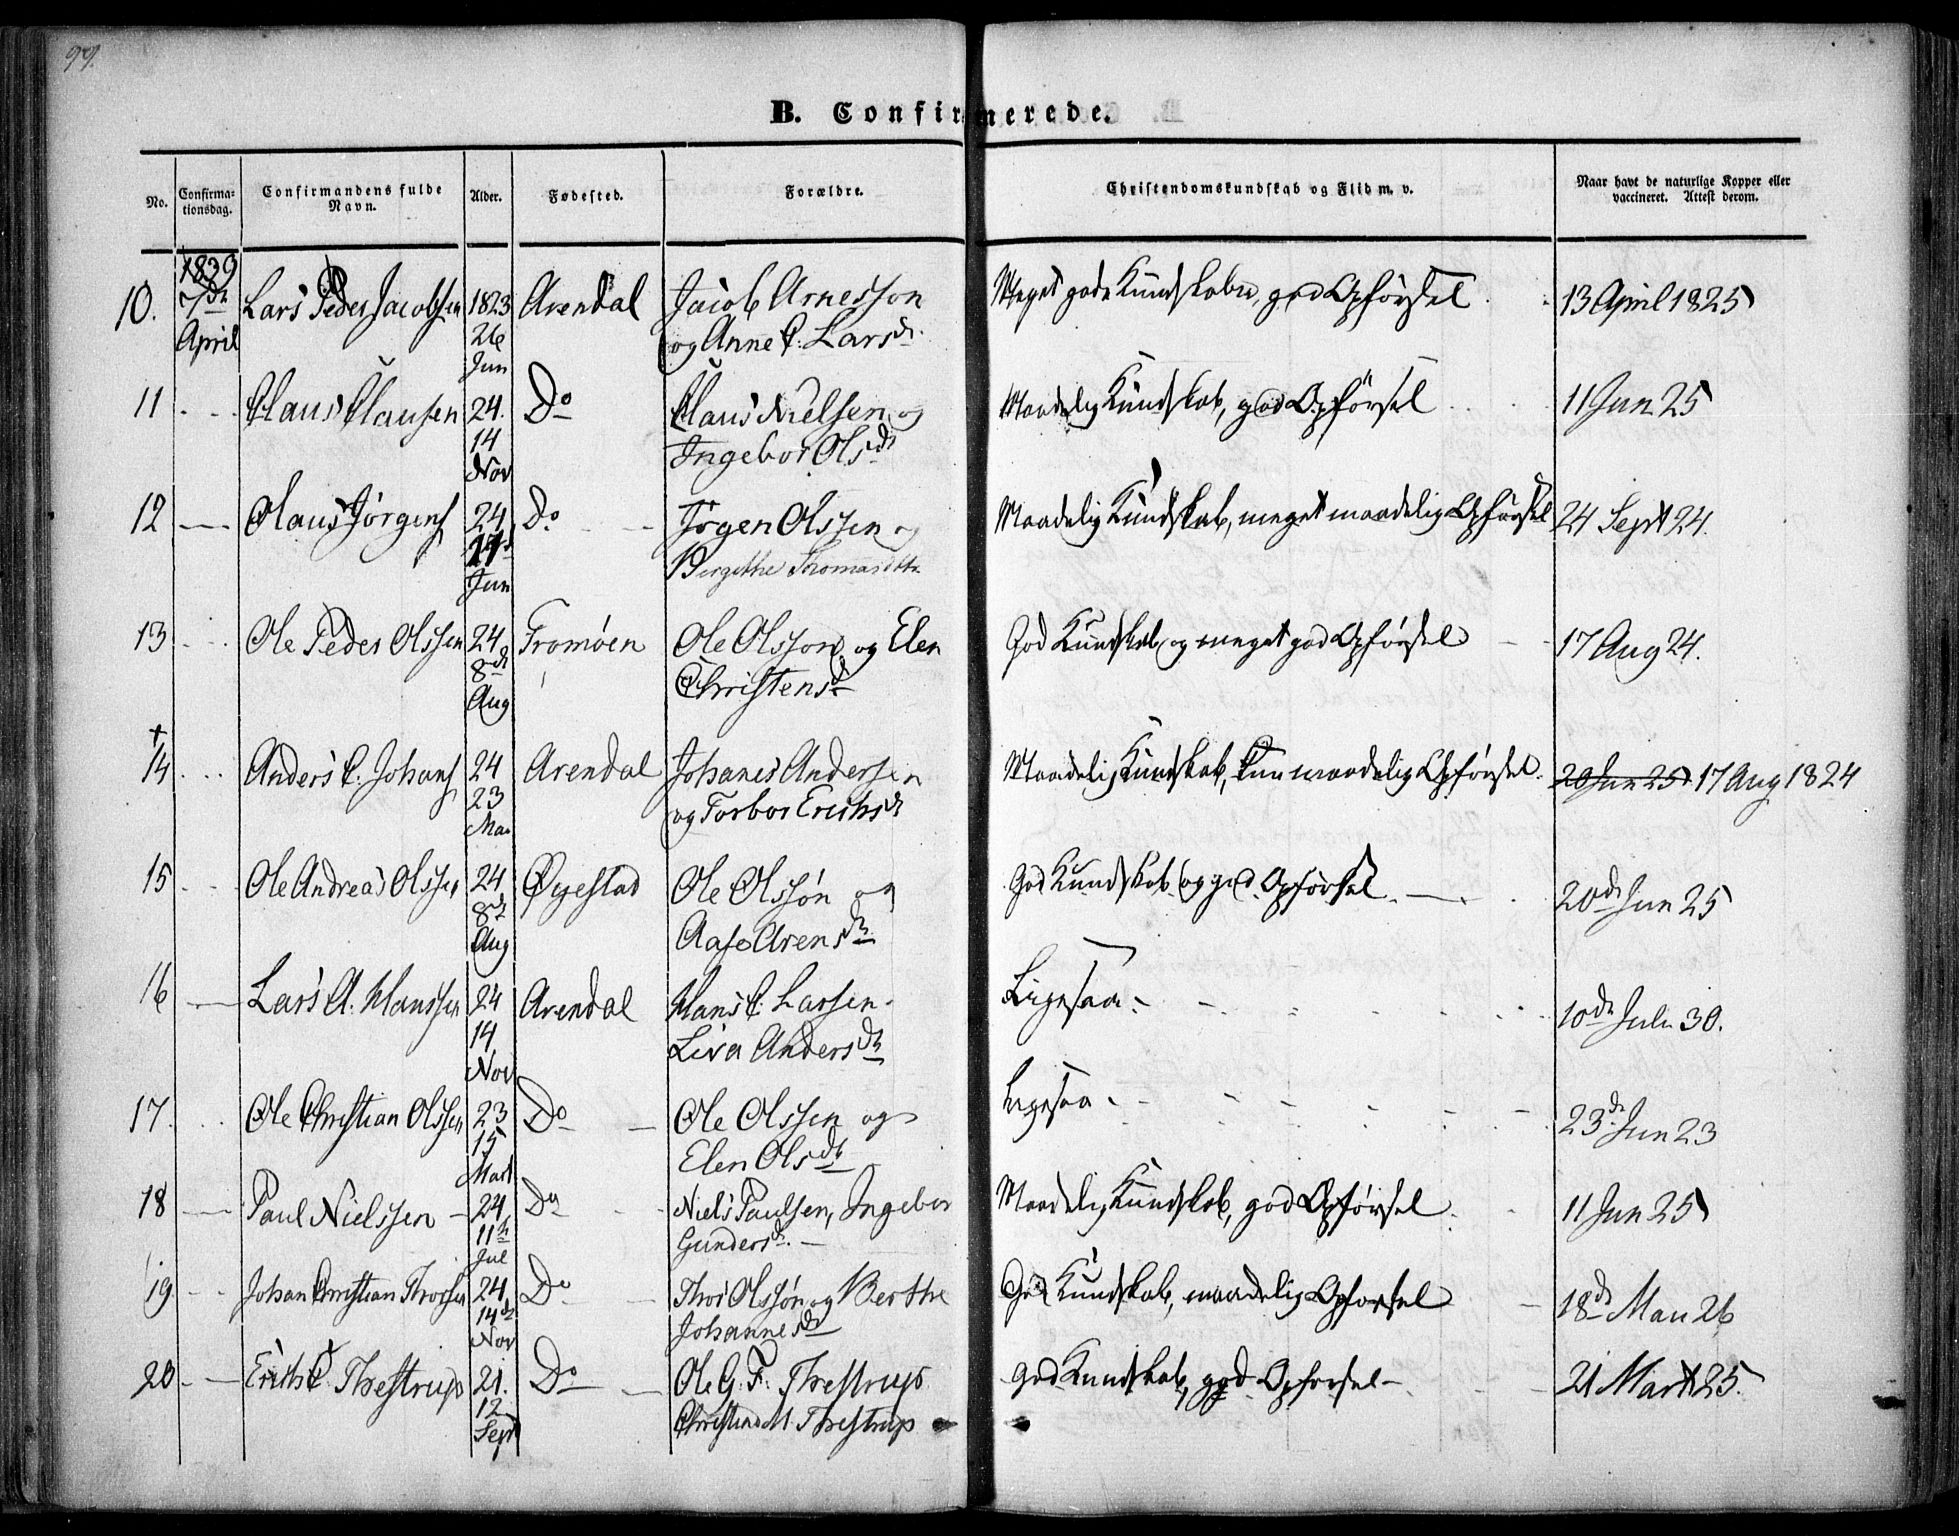 99.
B. Confirmerede.
No. Confirmationsdag. Confirmandens fulde Navn. Alder. Fødested. Forældre. Christendomskundskab og Flid m. v. Naar havt de naturlige Kopper eller vaccineret. Attest derom.
1839
10. 7de Lars Peder Jacobsen 1823 Arendal Jacob Arnesson Meget gode Kundskaber, god Opførsel 13 April 1825
April 26 og Anne C. Larsdr.
Jun
11 Claus Clausen 24. Do Claus Nielsen og Maadelig Kundskab, god Opførsel 11 Jun 25
14 Ingebor Olsdr
Nov
12 Olaus Jørgens 24 Do Jørgen Olssen og Maadelig Kundskab, meget maadelig Opførsel 24 Sept 24.
Birgithe Thomasdtr.
Jun
13 Ole Peder Olssen 24 Tromøen Ole Olsson og Elen God Kundskab og meget god Opførsel 17 Aug 24.
8de Christensdr
Aug
+
14 Anders C. Johans 24 Arendal Johanes Andersen Maadelig Kundskab, kun maadelig Opførsel. 20 Jun 25. 17 Aug 1824
23 og Torbor Erichsdr
Mai
15 Ole Andreas Olssen 24 Øyestad Ole Olssøn og God Kundskab og god Opførsel. 20de Jun 25
8de Aase Arensdr
Aug
16 Lars A. Hanssen 24 Arendal Hans C. Larsen Ligesaa 10de Juli 30.
14 Liva Andersdr
Nov
17. Ole Christian Olssen 23 Do Ole Olssen og Ligesaa 23de Jun 23
15 Elen Olsdr
Mart
18 Paul Nielssen 24 Do Niels Paulsen, Ingebor Maadelig Kundskab, god Opførsel 11 Jun 25
11te Gundersdr.
Jul
19 Johan Christian Thorsen 24 Do Thor Olssøn og Berthe God Kundskab, maadelig Opførsel 18de Mai 26
14de Johannesdr
Nov
20 Erich C. Thestrup 21. Do Ole G. F. Thestrup God Kundskab, god Opførsel 21 Mart 25.
12 Christina M Thestrup
Sept